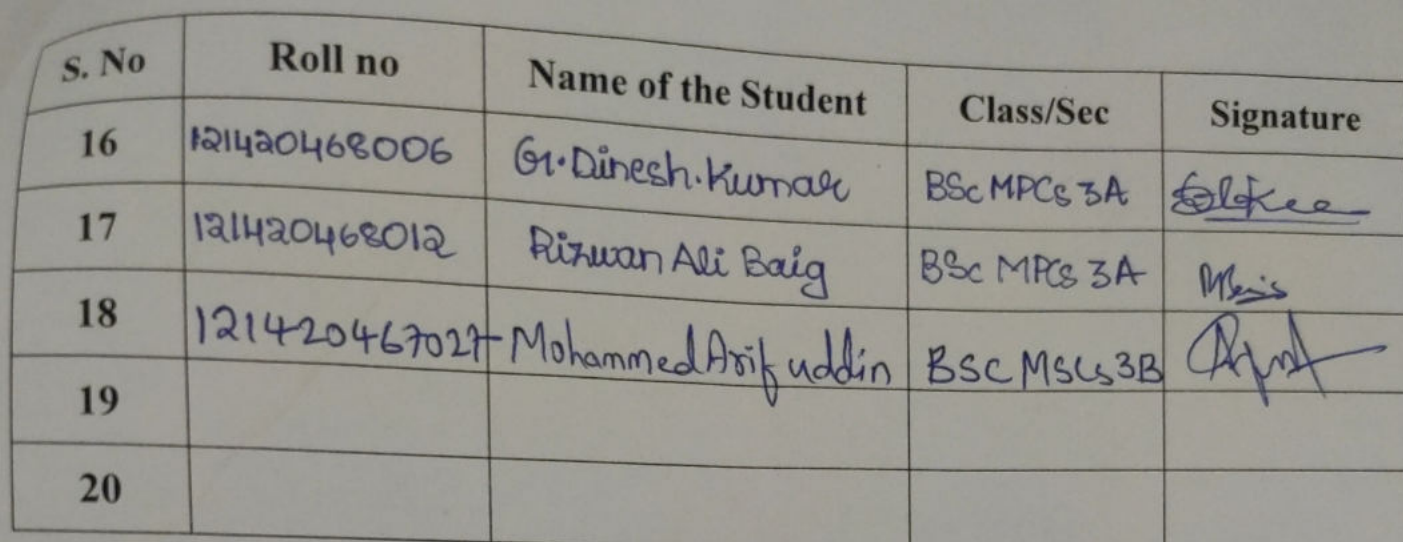 S. No Roll no Name of the Student Class/Sec Signature
16 121420468006 G. Dinesh. Kumar BSc MPCs 3A
17 121420468012 Rizwan Ali Baig BSc MPCs 3A
18 121420467027 Mohammed Arif uddin BSC MSCs 3B
19
20